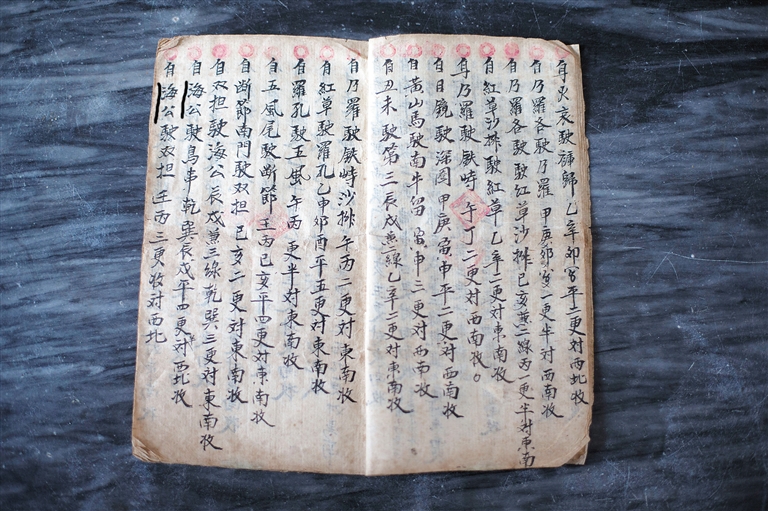 自火哀駛裤歸乙辛卯平二更对西北收
自乃羅各駛乃羅甲庚卯一更半对西南收
自乃羅各駛紅草沙排巳亥兼二線丙一更半对東南
自紅草沙排駛紅草乙辛二更对東南收
自乃羅駛鉄峙午丁二更对西南收。
自目鏡駛深圈甲庚寅申平二更对西南收
自黄山馬駛南牛留寅申二更对西南收
自丑未駛第三辰戌兼二線乙辛二更对東南收
自乃羅駛鉄峙沙排午丙二更对東南收
自紅草駛羅孔乙甲卯酉平五更对東南收
自羅孔駛五風午丙一更半对東南收
自五風尾駛断節壬丙巳亥平四更对東南收
自断節南門駛双担巳亥二更对東南收
自双担駛海公辰戌兼三線乾巽三更对東南收
自海公駛鳥串乾巽辰戌平四更对西北收
自海公駛双担壬丙三更收对西北